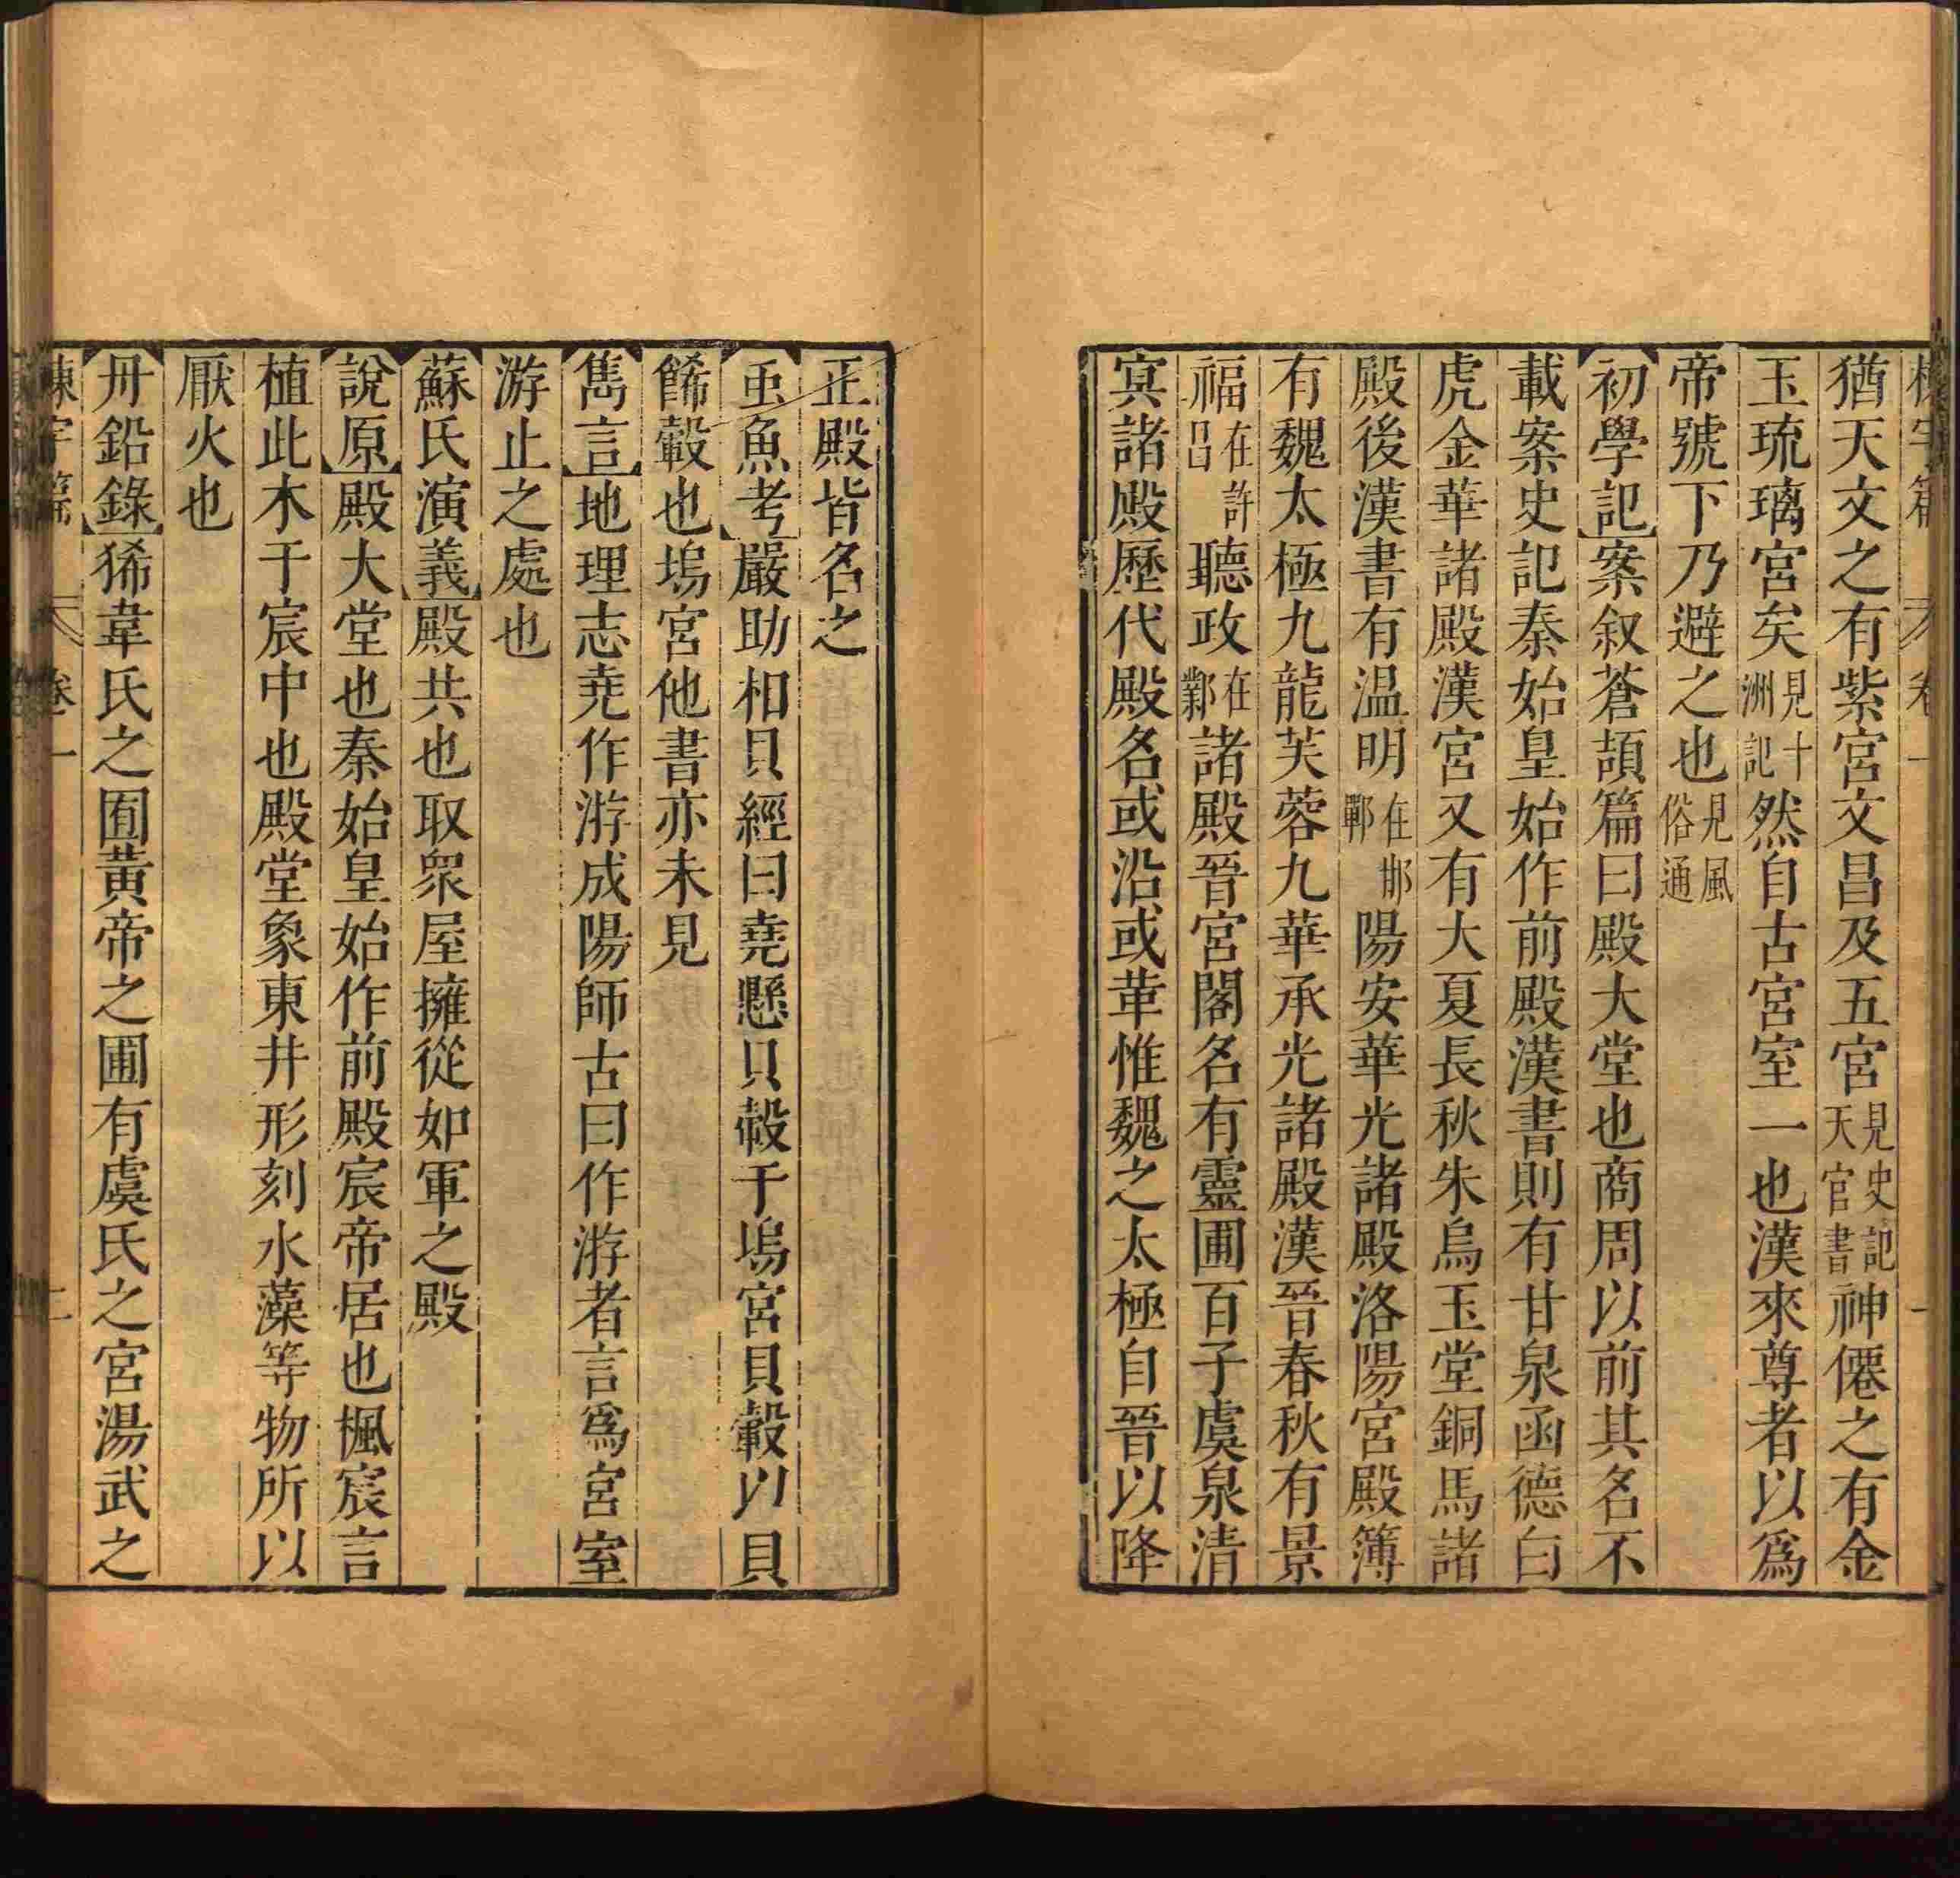 棟宇篇 卷一 一
猶天文之有紫宮文昌及五宮見史記天官書神僊之有金
玉琉璃宮矣見十洲記然自古宮室一也漢來尊者以爲
帝號下乃避之也見風俗通
初學記案叙蒼頡篇曰殿大堂也商周以前其名不
載案史記秦始皇始作前殿漢書則有甘泉函德白
虎金華諸殿漢宮又有大夏長秋朱鳥玉堂銅馬諸
殿後漢書有温明在邯鄲陽安華光諸殿洛陽宮殿簿
有魏太極九龍芙蓉九華承光諸殿漢晉春秋有景
福在許昌聽政在鄴諸殿晉宮閣名有靈圃百子虞泉清
冥諸殿歷代殿名或沿或革惟魏之太極自晉以降
正殿皆名之
䖝魚考嚴助相貝經曰堯懸貝瞉于塢宮貝轂以貝
餙轂也塢宮他書亦未見
雋言地理志堯作游成陽師古曰作游者言爲宮室
游止之處也
蘇氏演義殿共也取衆屋擁從如軍之殿
說原殿大堂也秦始皇始作前殿宸帝居也楓宸言
植此木于宸中也殿堂象東井形刻水藻等物所以
厭火也
丹鉛錄豨韋氏之囿黃帝之圃有虞氏之宮湯武之
棟宇篇 卷一 二